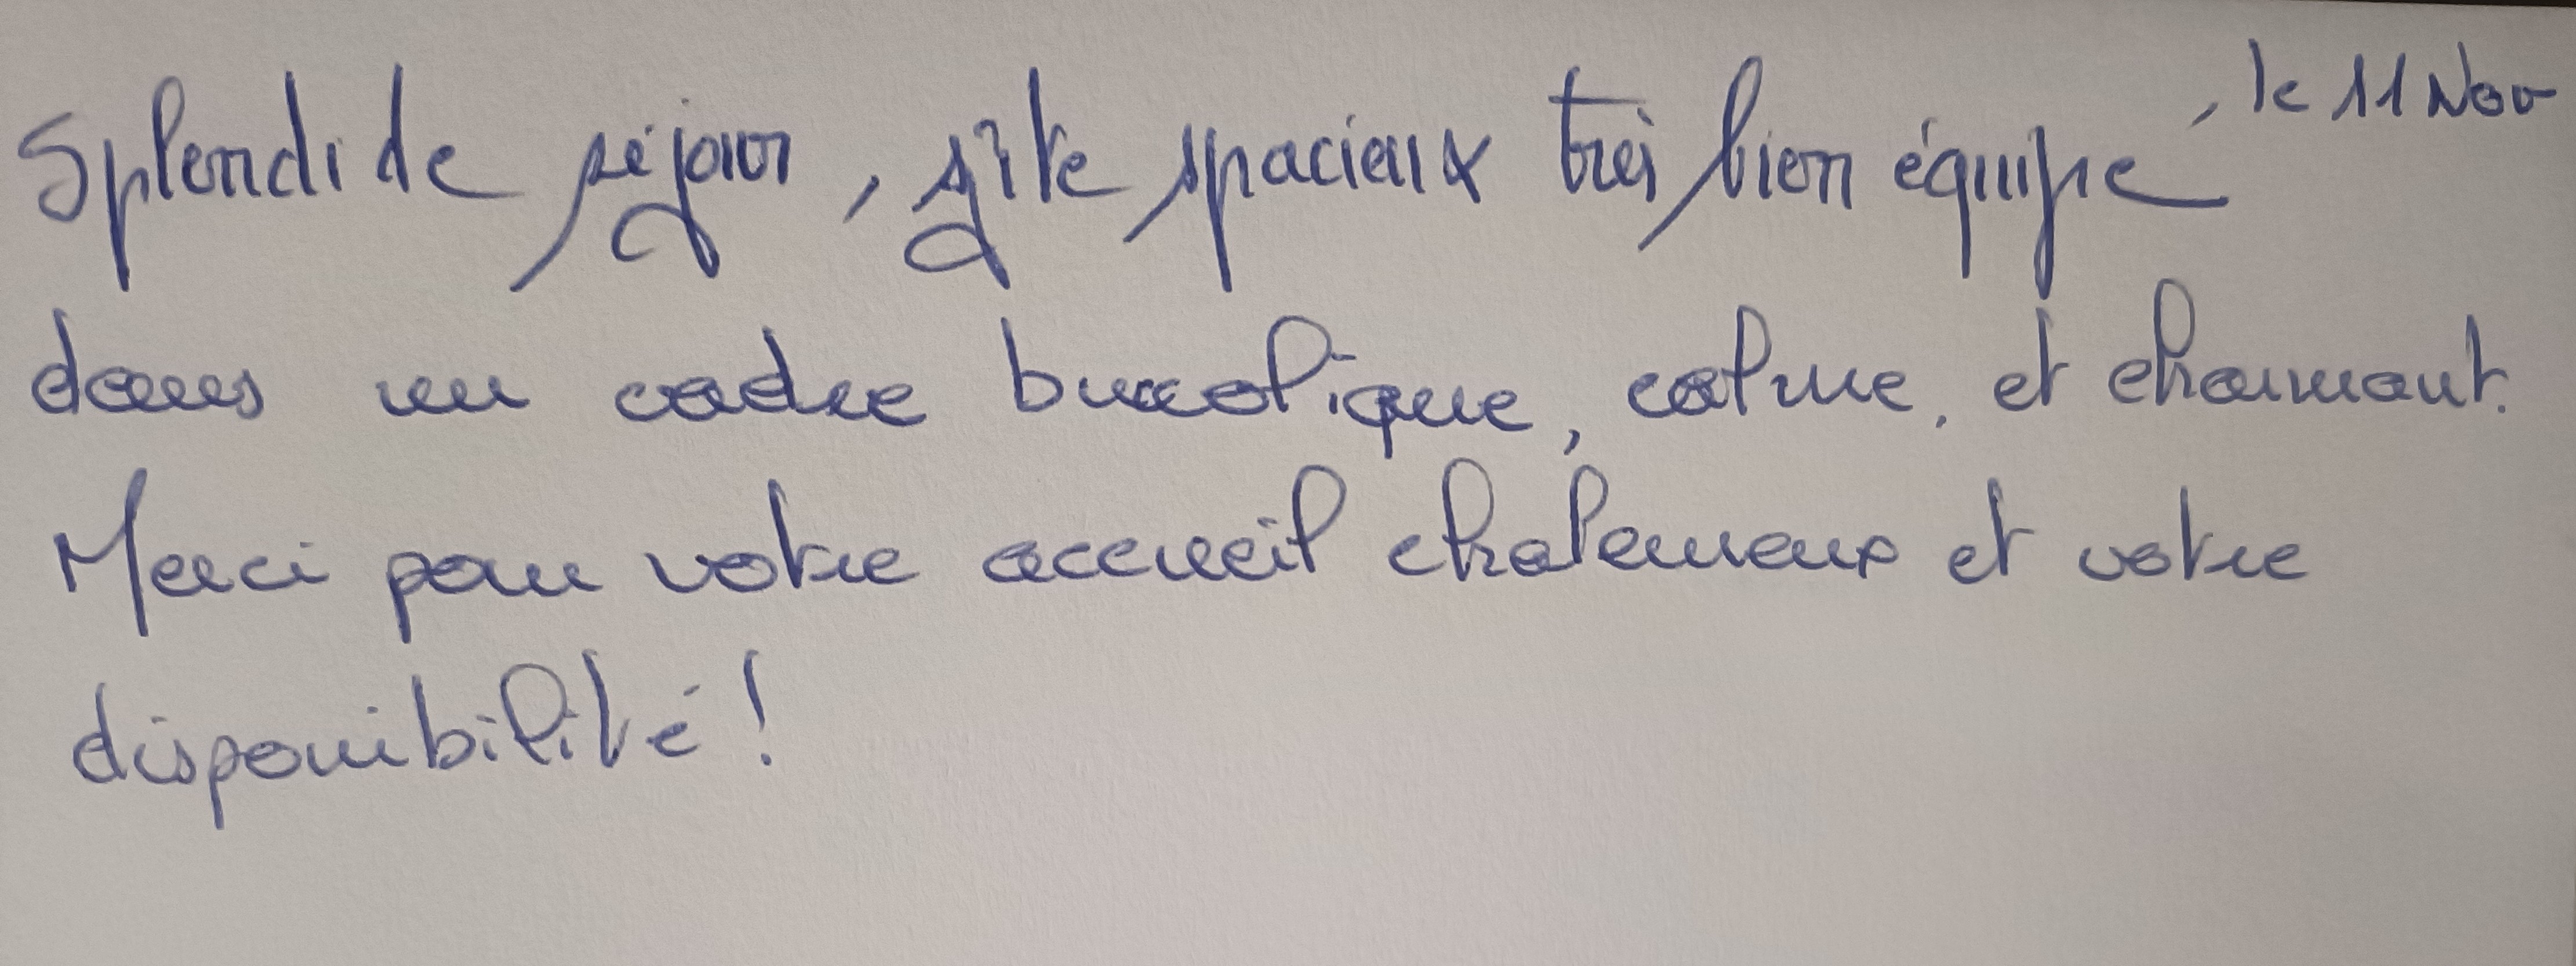 le 11 Nov
Splendide séjour, gîte spacieux très bien équipé,
dans un cadre bucolique, calme, et charmant.
Merci pour votre accueil chaleureux et votre
disponibilité !